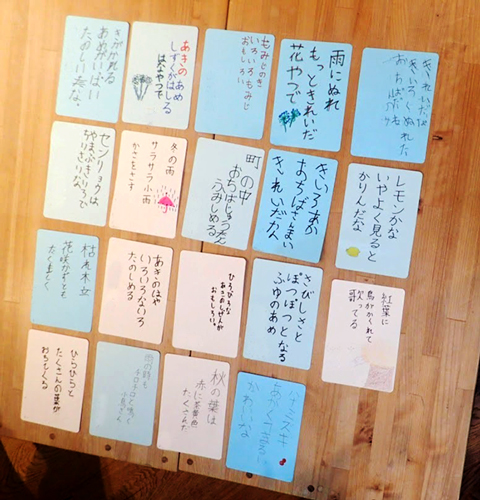 きがかれる
あめがいっぱい
たのしいな
あきのあめ
しずくがはしる
はなやつで
もみじのき
いろいろもみじ
おもしろい
雨にぬれ
もっときれいだ
花やつで
きれいだな
きいろくぬれた
おちばだ
センリョウは
やまぶきいろで
ちりさりな
冬の雨
サラサラ小雨
かさをさす
町の中
おちばじゅうたん
ふみしめる
きいろあか
おちばざんまい
きれいだな
レモンかな
いやよく見ると
かりんだな
枯れ木立
花咲かずとも
たくましく
あきのはや
いろいろないろ
たのしめる
ひらひらな
あきのおしばが
おもしろい
さびしさと
ぽつぽつとなる
ふゆのあめ
紅葉に
鳥がかくれて
笑ってる
ひらひらと
たくさんの葉が
おちてくる
雨の時も
チロチロと鳴く
小鳥さん
秋の葉は
赤に茶黄色
たくさんだ
ハナミズキ